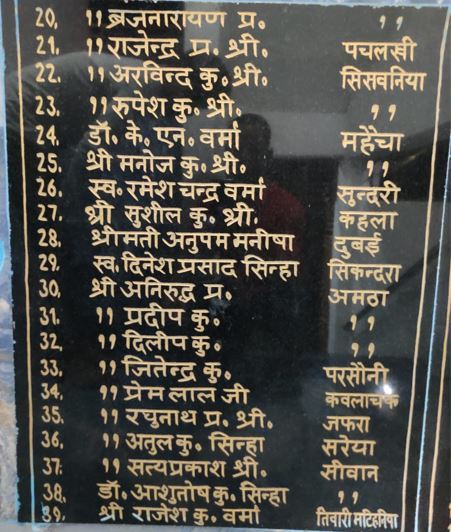 20. ,, ब्रजनारायण प्र. ,,
21. ,, राजेन्द्र प्र. श्री. पचलखी
22. ,, अरविन्द कु. श्री. सिसवनिया
23. ,, रुपेश कु. श्री. ,,
24. डॉ. के. एन. वर्मा महैचा
25. श्री मनोज कु. श्री. ,,
26. स्व. रमेश चन्द्र वर्मा सुन्दरी
27. श्री सुशील कु. श्री. कहला
28. श्रीमती अनुपम मनीषा दुबई
29. स्व. दिनेश प्रसाद सिन्हा सिकन्दरा
30. श्री अनिरुद्ध प्र. अमठा
31. ,, प्रदीप कु. ,,
32. ,, दिलीप कु. ,,
33. ,, जितेन्द्र कु. परसौनी
34. ,, प्रेम लाल जी कवलाचक
35. ,, रघुनाथ प्र. श्री. जफरा
36. ,, अतुल कु. सिन्हा सरेया
37. ,, सत्यप्रकाश श्री. सीवान
38. डॉ. आशुतोष कु. सिन्हा ,,
39. श्री राजेश कु. वर्मा तिवारी मटिहनिया